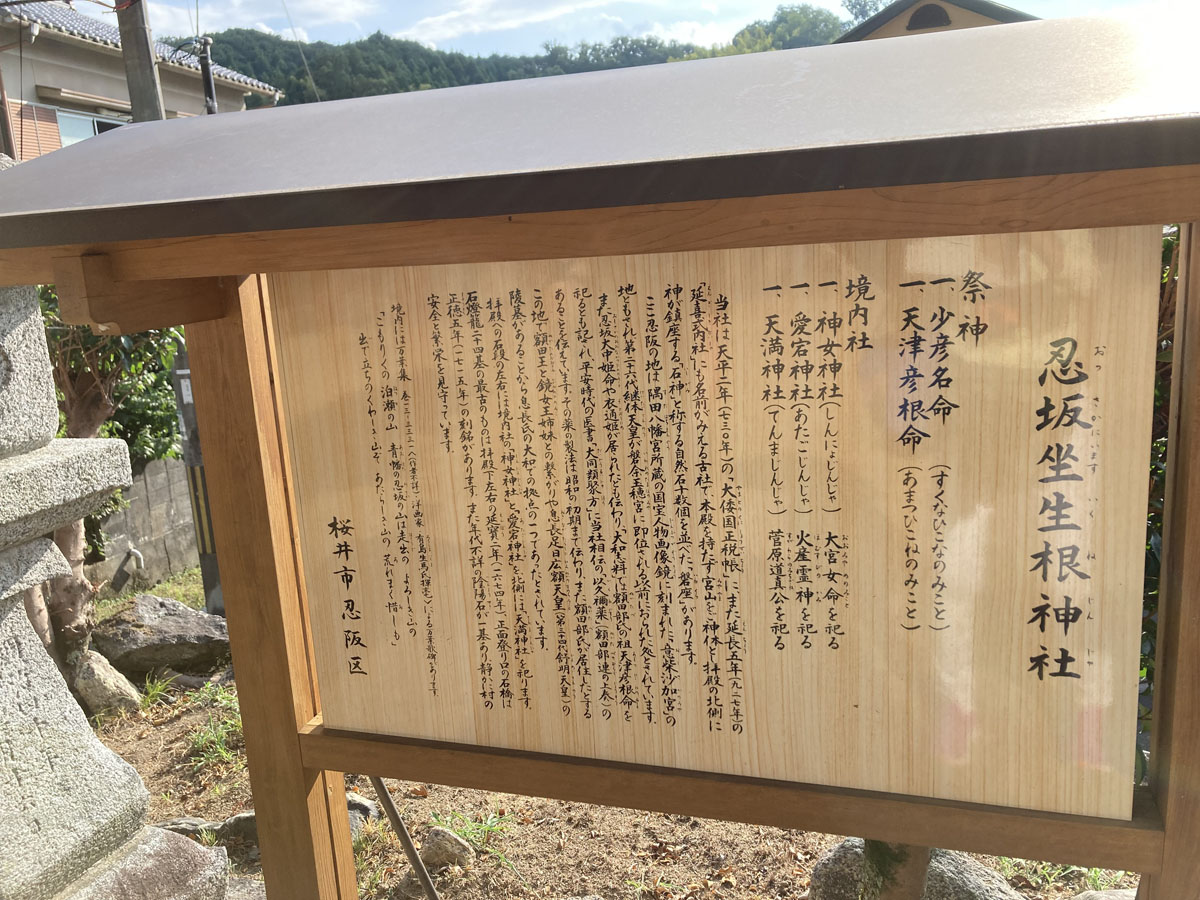 忍坂坐生根神社
祭神
一、少彦名命(すくなひこなのみこと)
一、天津彦根命(あまつひこねのみこと)
境内社
一、神女神社(しんにょじんじゃ) 大宮女命を祀る
一、愛宕神社(あたごじんじゃ) 火産霊神を祀る
一、天満神社(てんまじんじゃ) 菅原道真公を祀る
当社は天平二年(七三〇年)の「大倭国正税帳」に、また延長五年(九二七年)の
「延喜式内社」にも名前がみえる古社で、本殿を持たず宮山を「神体」とし、拝殿の北側に
神が鎮座する「石神」と称する自然石十数個を並べた「磐座」があります。
ここ忍阪の地は、隅田八幡宮所蔵の国宝人物画像鏡に刻まれた「意柴沙加宮」の
地ともされ、第二十六代継体天皇が磐余玉穂宮に即位される以前におられた処とされています。
また忍坂大中姫命や衣通姫が居られたとも伝わり、「大和志料」では額田部氏の祖天津彦根命を
祀るとも記され、平安時代の医書「大同類聚方」に当社相伝の「以久禰薬」(額田部連の上奏)の
あることを伝えています。その薬の製法は昭和の初期まで伝わり、また額田部氏が居住したとする
この地で額田王と鏡女王姉妹との繋がりや息長足日広額天皇(第三十四代舒明天皇)の
陵墓があることから息長氏の大和での拠点の一つであったとされています。
拝殿への石段の左右には境内社の「神女神社」と「愛宕神社」を、北側には「天満神社」を祀ります。
石燈籠二十四基の最古のものは拝殿下左右の延宝二年(一六七四年)、正面登り口の石橋は
正徳五年(一七一五年)の刻銘があります。また年代不詳の陰陽石が一基あり静かに村の
安全と繁栄を見守っています。
境内には万葉集 巻十三-三三三一(作者不詳)洋画家 有島生馬氏揮毫による万葉歌碑があります。
「こもりくの 泊瀬の山 青幡の忍坂の山は走出の よろしき山の
出で立ちの くわしき山ぞ あたらしき山の 荒れまく惜しも」
桜井市忍阪区